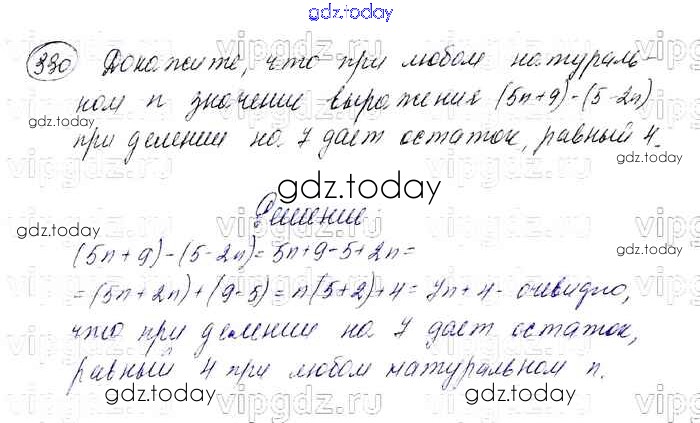 gdz.today
330 Докажите, что при любом натураль-
ном n значение выражения (5n+9)-(5-2n)
при делении на 7 дает остаток, равный 4.
Решение
(5n+9)-(5-2n)=5n+9-5+2n=
=(5n+2n)+(9-5)=n(5+2)+4=7n+4- очевидно,
что при делении на 7 дает остаток,
равный 4 при любом натуральном n.
vipgdz.ru
gdz.today
gdz.today
gdz.today
gdz.today
gdz.today
gdz.today
gdz.today
gdz.today